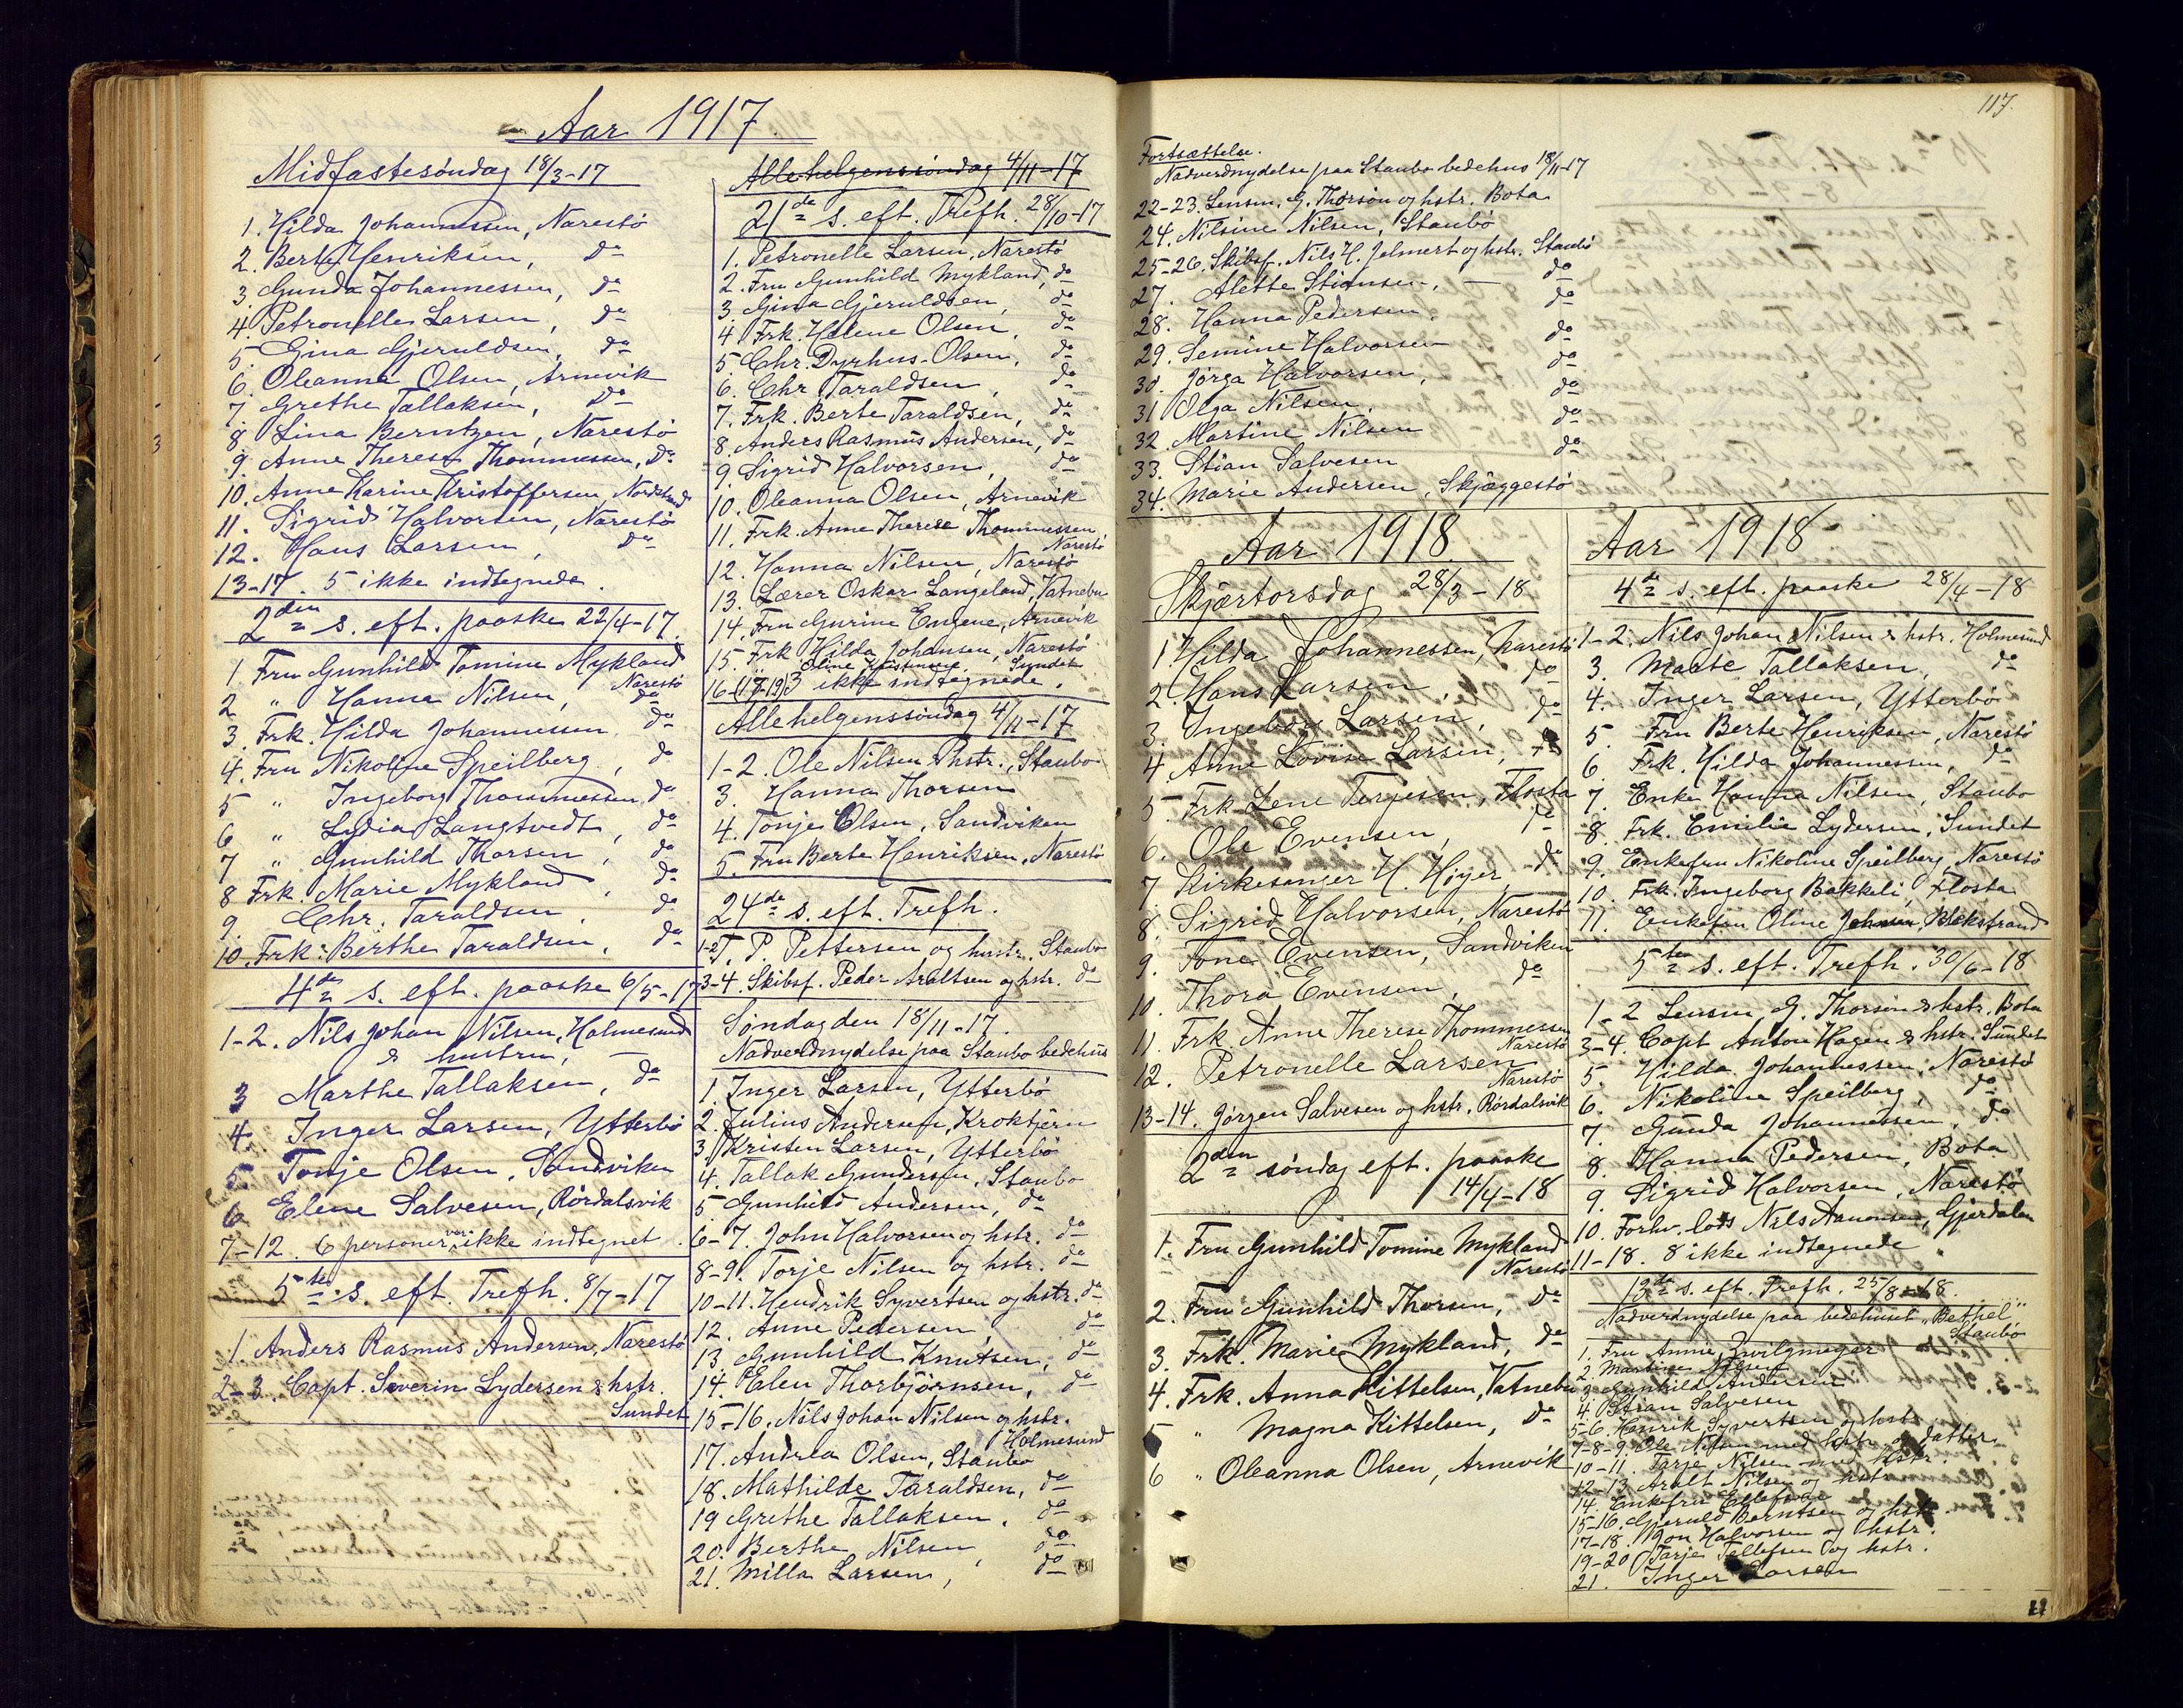 Aar 1917.
Midfastesøndag 18/3-17
1. Hilda Johannessen, Narestö
2. Berte Henriksen, do
3. Gunda Johannessen, do
4. Petronelle Larsen, do
5. Gina Gjeruldsen, do
6. Oleanne Olsen, Arnevik
7. Grethe Tallaksen, do
8. Lina Berntzen, Narestö
9. Anne Therese Thommessen, do
10. Anne Karine Kristoffersen,
11. Sigrid Halvorsen, Narestö
12. Hans Larsen, do
13-17. 5 ikke indtegnede.
2den s. eft. paaske 22/4-17.
1. Fru Gunhild Tomine Mykland
Narestö
2 " Hanna Nilsen, do
3. Frk. Hilda Johannessen do
4. Fru Nikoline Speilberg, do
5 " Ingeborg Thommessen, do
6 " Lydia Langtvedt, do
7 " Gunhild Thorsen, do
8 Frk. Marie Mykland, do
9. Chr. Taraldsen, do
10. Frk. Berthe Taraldsen, do
4de s. eft. paaske 6/5-17
1-2. Nils Johan Nilsen, Holmesund
& hustru, —
3 Marthe Tallaksen, do
4. Inger Larsen, Ytterbö
5. Tonje Olsen, Sandviken
6. Elene Salvesen, Rördalsvik
7-12. 6 personer var ikke indtegnet.
5te s. eft. Trefh. 8/7-17
1 Anders Rasmus Andersen, Narestö
2-3. Capt. Severin Lydersen & hstr.
Sundet
Allehelgenssöndag 4/11-17
21de s. eft. Trefh. 28/10-17
1. Petronelle Larsen, Narestö
2. Fru Gunhild Mykland, do
3. Gina Gjeruldsen, do
4. Frk. Helene Olsen, do
5. Chr. Dyrhus-Olsen, do
6. Chr Taraldsen, do
7. Frk. Berte Taraldsen, do
8. Anders Rasmus Andersen, do
9. Sigrid Halvorsen, do
10. Oleanna Olsen, Arnevik
11. Frk. Anne Therese Thommessen
Narestö
12. Hanna Nilsen, Narestö
13. Lærer Oskar Langeland, Vatnebu
14. Fru Gurine Engene, Arnevik
15. Frk Hilda Johansen, Narestö
Oline Kristensen, Sundet
16-(17-19) 3 ikke indtegnede.
Allehelgenssöndag 4/11-17
1-2. Ole Nilsen & hstr., Staubo
3. Hanna Thorsen
4. Tonje Olsen, Sandviken
5. Fru Berte Henriksen, Narestö
24de s. eft. Trefh.
1-2. T. P. Pettersen og hustr. Staubo
3-4. Skibsf. Peder Araltsen og hstr. do
Söndag den 18/11-17.
Nadverdnydelse paa Staubo bedehus
1. Inger Larsen, Ytterbö
2. Julius Andersen, Kroktjern
3. Kristen Larsen, Ytterbö
4. Tallak Gundersen, Staubo
5 Gunhild Andersen, do
6-7. John Halvorsen og hstr. do
8-9. Torje Nilsen og hstr. do
10-11. Hendrik Syvertsen og hstr. do
12. Anne Pedersen, do
13. Gunhild Knutsen, do
14. Elen Thorbjörnsen, do
15-16. Nils Johan Nilsen og hstr.
Holmesund
17. Andrea Olsen, Staubö
18. Mathilde Taraldsen, do
19 Grethe Tallaksen, do
20. Berthe Nilsen, do
21. Milla Larsen, do
117.
Fortsættelse.
Nadverdnydelse paa Staubo bedehus 18/11-17
22-23. Lensm. G. Thorsön og hstr. Bota
24. Nilsine Nilsen, Staubö
25-26. Skibsf. Nils H. Jelmert og hstr. Staubö
27. Alette Stiansen, — do
28. Hanna Pedersen, do
29. Semine Halvorsen do
30. Jörga Halvorsen, do
31 Olga Nilsen, do
32. Martine Nilsen do
33. Stian Salvesen do
34. Marie Andersen, Skjæggestö
Aar 1918
Skjærtorsdag 28/3-18
1 Hilda Johannessen, Narestö
2. Hans Larsen, do
3. Ingeborg Larsen, do
4. Anne Lovise Larsen, do
5. Frk Lene Terjesen, Flosta
6. Ole Evensen, do
7. Kirkesanger H. Höyer, do
8. Sigrid Halvorsen, Narestö
9. Tone Evensen, Sandviken
10. Thora Evensen, do
11. Frk. Anne Therese Thommessen
Narestö
12. Petronelle Larsen
Narestö
13-14. Jörgen Salvesen og hstr. Rördalsvik
2den söndag eft. paaske
14/4-18
1. Fru Gunhild Tomine Mykland
Narestö
2. Fru Gunhild Thorsen, do
3. Frk. Marie Mykland, do
4. Frk. Anna Kittelsen, Vatnebu
5 " Magna Kittelsen, do
6 " Oleanna Olsen, Arnevik
Aar 1918
4de s. eft. paaske 28/4-18
1-2. Nils Johan Nilsen & hstr. Holmesund
3. Marte Tallaksen, do
4. Inger Larsen, Ytterbö
5 Fru Berte Henriksen, Narestö
6 Frk. Hilda Johannessen, do
7. Enke Hanna Nilsen, Staubo
8. Frk. Emilie Lydersen, Sundet
9. Enkefru Nikoline Speilberg, Narestö
10. Frk. Ingeborg Bakkeli, Flosta
11. Enkefru Oline Jensen, Blekstrand
5te s. eft. Trefh. 30/6-18
1-2 Lensm. G. Thorsen & hstr. Bota
3-4. Capt Anton Hagen & hstr. Sundet
5. Hilda Johannessen, Narestö
6. Nikoline Speilberg, do
7. Gunda Johannessen, do
8. Hanna Pedersen, Bota
9. Sigrid Halvorsen, Narestö
10. Forhv. lods Nils Aanonsen, Gjerdalen
11-18. 8 ikke indtegnede
13de s. eft. Trefh. 25/8-18.
Nadverdnydelse paa bedehuset "Bethel"
Staubö
1. Fru Annie Zwilgmeyer
2. Martine Nilsen
3. Gunhild Andersen
4. Stian Salvesen
5-6. Henrik Syvertsen og hstr.
7-8-9. Ole Nilsen med hstr. og datter
10-11. Tarje Nilsen med hstr.
12-13. Aralt Nilsen og hstr.
14. Enkefru
15-16. Gjeruld Berntsen og hstr.
17-18. Jon Halvorsen og hstr.
19-20. Tarje Tellefsen og hstr.
21. Inger Larsen